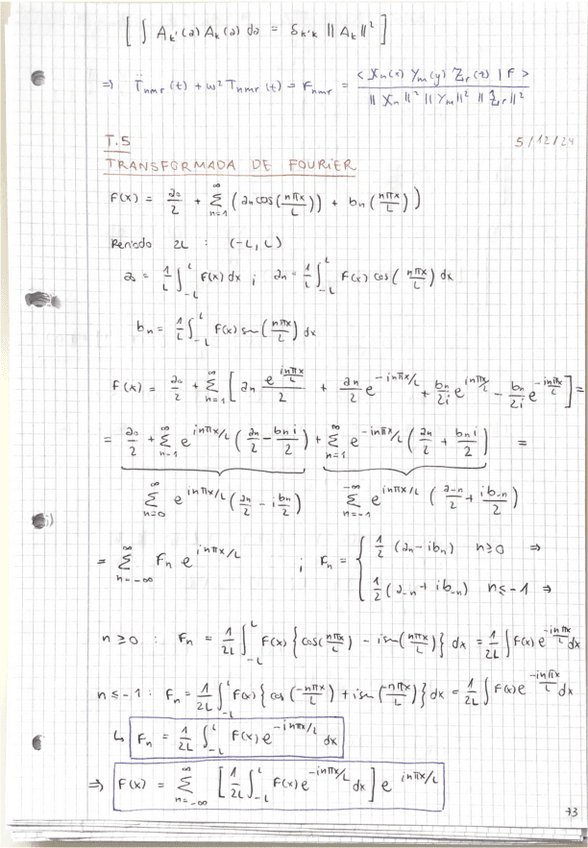 [ ∫ A_k'(a) A_k(a) da = δ_k'k ||A_k||² ]
=> T̈_nmr(t) + ω² T_nmr(t) = F_nmr = <X_n(x) Y_m(y) Z_r(z) | F> / ||X_n||² ||Y_m||² ||Z_r||²
T.5 5/12/24
TRANSFORMADA DE FOURIER
F(x) = a₀/2 + Σ_{n=1}^{∞} (a_n cos(nπx/L)) + b_n (nπx/L))
Periodo 2L : (-L, L)
a₀ = 1/L ∫_{-L}^{L} F(x) dx ; a_n = 1/L ∫_{-L}^{L} F(x) cos(nπx/L) dx
b_n = 1/L ∫_{-L}^{L} F(x) sen(nπx/L) dx
F(x) = a₀/2 + Σ_{n=1}^{∞} [ a_n e^{inπx/L}/2 + a_n/2 e^{-inπx/L} + b_n/2i e^{inπx/L} - b_n/2i e^{-inπx/L} ] =
= a₀/2 + Σ_{n=1}^{∞} e^{inπx/L} (a_n/2 - b_n i/2) + Σ_{n=1}^{∞} e^{-inπx/L} (a_n/2 + b_n i/2) =
Σ_{n=0}^{∞} e^{inπx/L} (a_n/2 - i b_n/2) Σ_{n=-1}^{-∞} e^{inπx/L} (a_{-n}/2 + i b_{-n}/2)
= Σ_{n=-∞}^{∞} F_n e^{inπx/L} ; F_n = { 1/2 (a_n - ib_n) n≥0 =>
1/2 (a_{-n} + ib_{-n}) n≤-1 =>
n≥0 : F_n = 1/2L ∫_{-L}^{L} F(x) {cos(nπx/L) - i sen(nπx/L)} dx = 1/2L ∫ F(x) e^{-inπx/L} dx
n≤-1 : F_n = 1/2L ∫_{-L}^{L} F(x) {cos(-nπx/L) + i sen(-nπx/L)} dx = 1/2L ∫ F(x) e^{-inπx/L} dx
↳ F_n = 1/2L ∫_{-L}^{L} F(x) e^{-inπx/L} dx
=> F(x) = Σ_{n=-∞}^{∞} [ 1/2L ∫_{-L}^{L} F(x) e^{-inπx/L} dx ] e^{inπx/L}
73